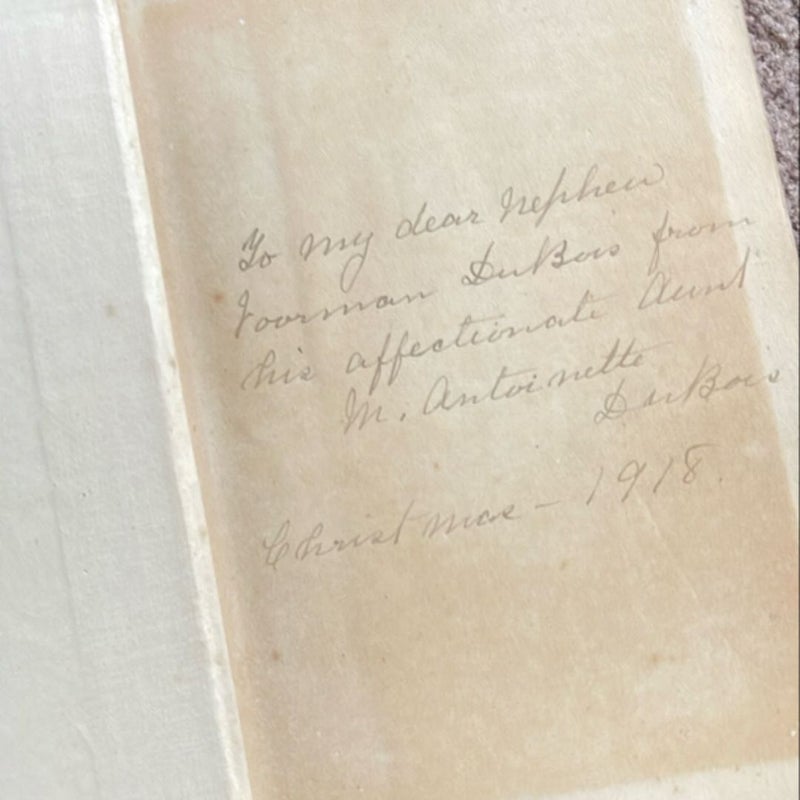 To my dear Nephew
Voorman DuBois from
his affectionate Aunt
M. Antoinette
DuBois
Christmas - 1918.